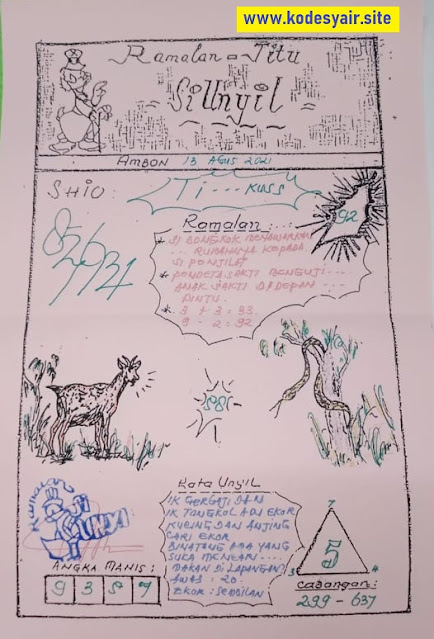 www.kodesyair.site
Ramalan = Titu
Si Unyil
AMBON 13 AGUS 2021
SHIO :
Ti --- KUSS
92
Ramalan :
* SI BONGKOK MENAWARKAN
... RUMAHNYA KEPADA
SI PENJILAT
* PENDETA SAKTI MENGUJI ...
ANAK SAKTI DI DEPAN ...
PINTU.
* 3 + 3 = 33.
9 - 2 = 92
Kata Unyil
IK GERGAJI DAN
IK TONGKOL ADU EKOR
KUCING DAN ANJING
CARI EKOR
BINATANG APA YANG
SUKA MENCARI ....
MAKAN DI LAPANGAN?
AWAS : 20.
EKOR : SEMBILAN
7
5
3 4
ANGKA MANIS :
9 3 8 7
CABANGAN :
299 - 637